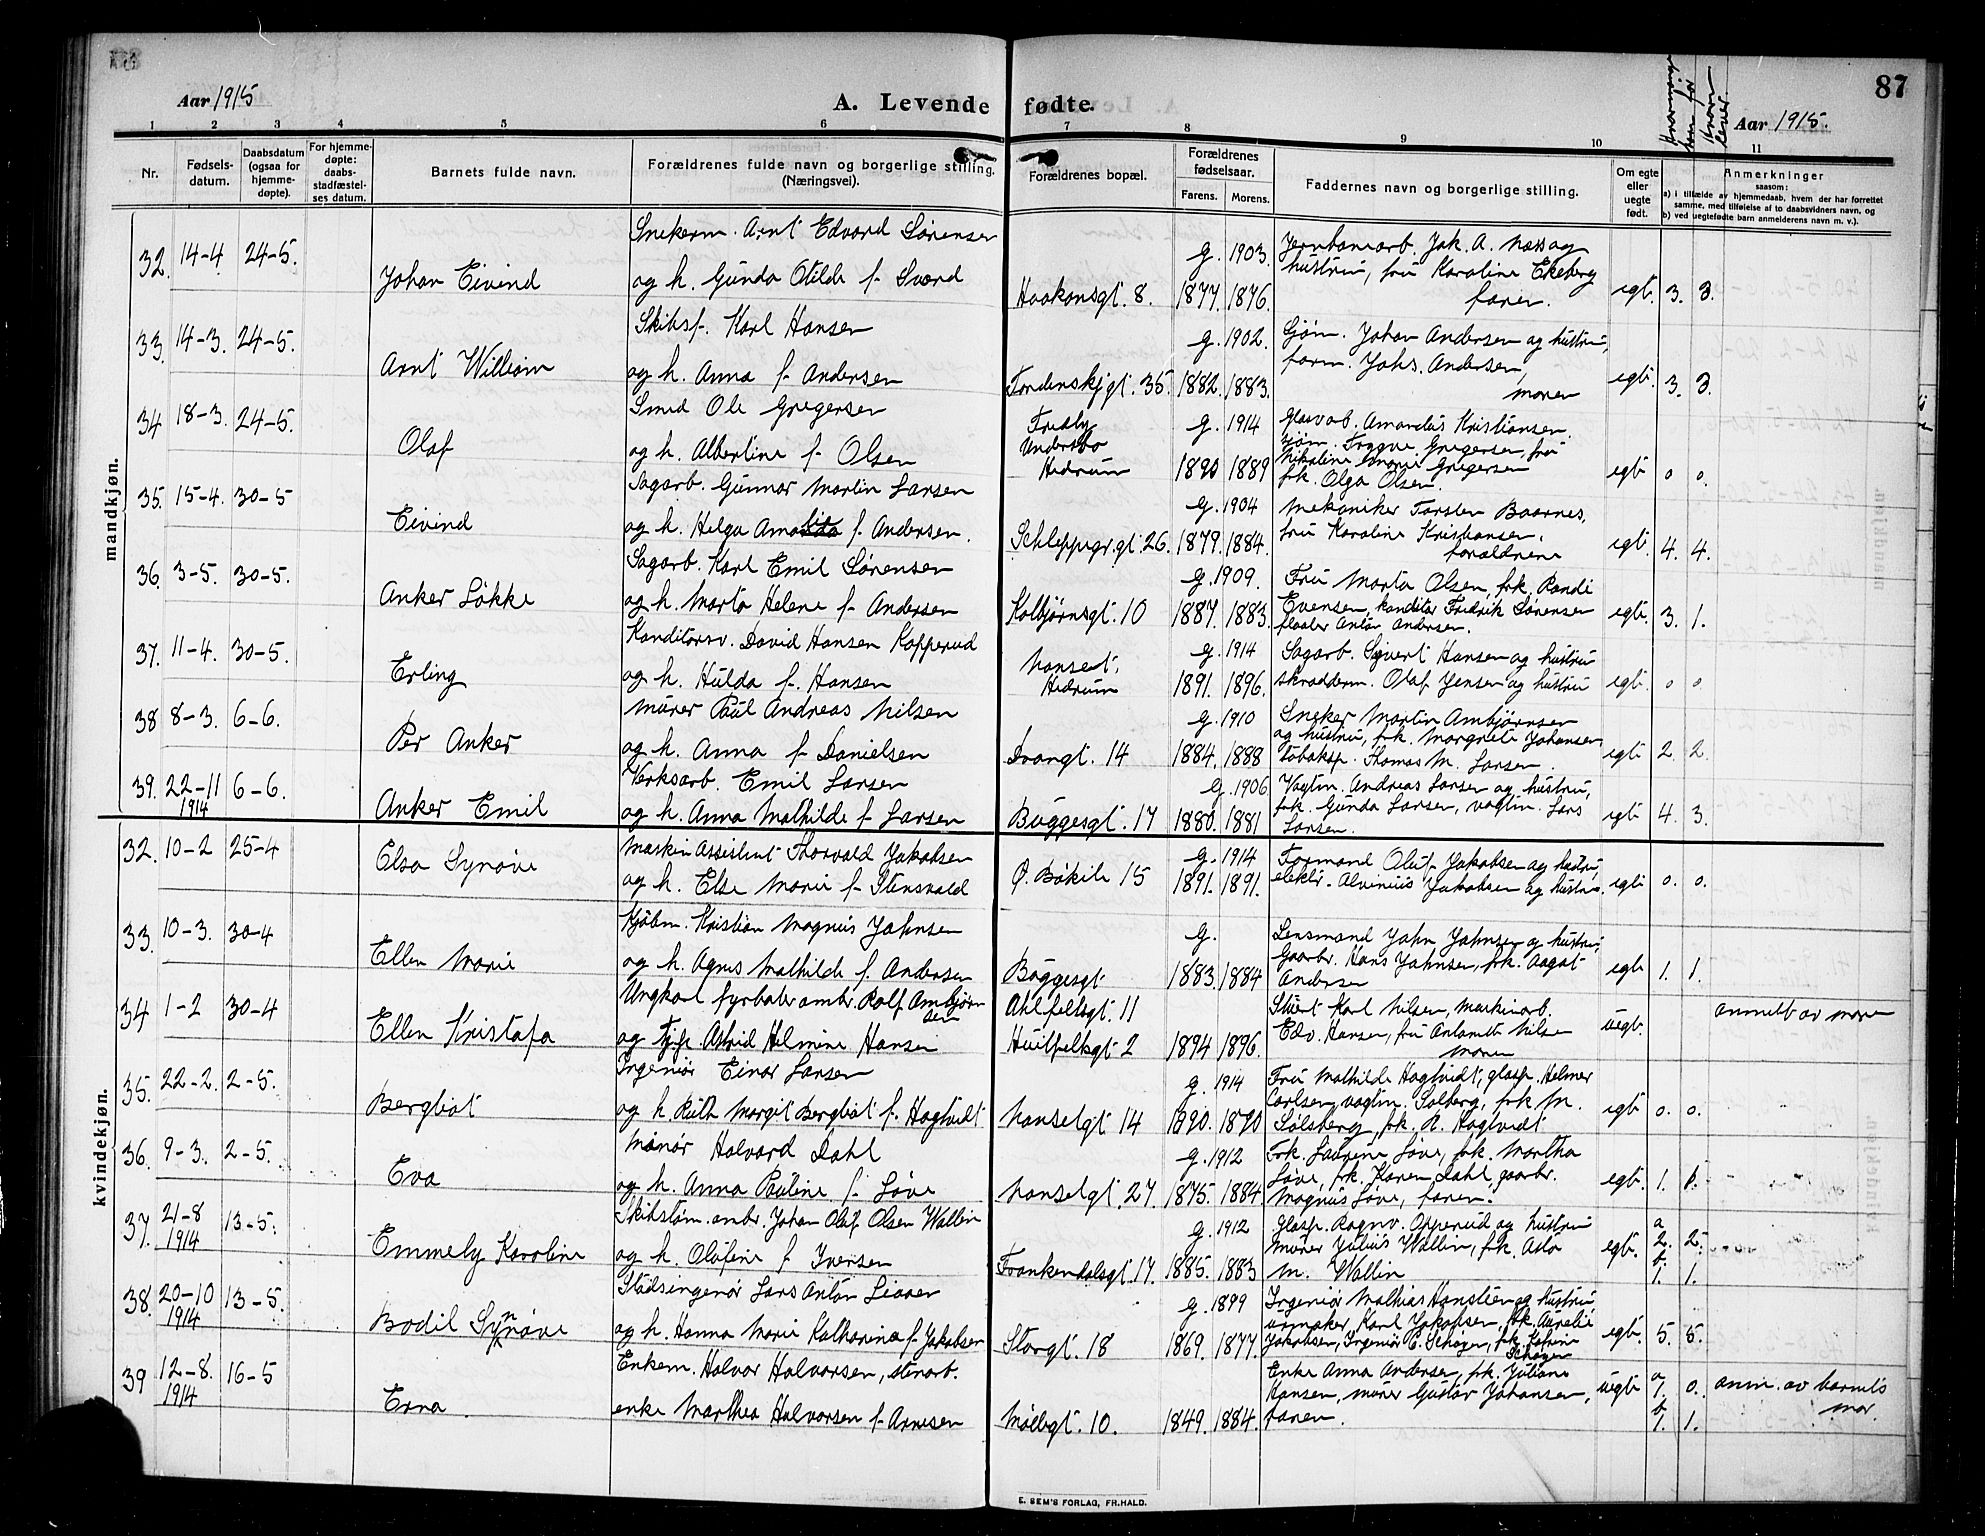 87
Aar 1915
A. Levende fødte.
Aar 1915.
1 2 3 4 5 6 7 8 9 10 11
Nr.
Fødsels-
datum.
Daabsdatum
(ogsaa for
hjemme-
døpte).
For hjemme-
døpte:
daabs-
stadfæstel-
ses datum.
Barnets fulde navn.
Forældrenes fulde navn og borgerlige stilling.
(Næringsvei).
Forældrenes bopæl.
Forældrenes
fødselsaar.
Farens. Morens.
Faddernes navn og borgerlige stilling.
Om egte
eller
uegte
født.
Anmerkninger
saasom:
a) i tilfælde av hjemmedaab, hvem der har forrettet
samme, med tilføielse af to daabsvidners navn, og
b) ved uegtefødte barn anmelderens navn m. v.).
mandkjøn.
32. 14-4 24-5. Johan Eivind
Snekerm. Arnt Edvard Sørensen
og h. Gunda Otilde f. Sværd
Haakonsgt. 8. g. 1903. 1877. 1876.
Jernbanearb. Jak. A. Næss og
hustru, fru Karoline Ekeberg
faren. egt. 3. 3.
33. 14-3. 24-5. Arnt William
Skibsf. Karl Hansen
og h. Anna f. Andersen
Tordenskjgt. 35. g. 1902. 1882. 1883.
Sjøm. Johan Andersen og hustru,
form. Johs. Andersen,
moren egt. 3. 3.
34 18-3. 24-5. Olaf
Smed Ole Gregersen
og h. Albertine f. Olsen
Hedrum g. 1914 1890 1889
Glasarb. Amandus Kristiansen.
sjøm. Trygve Gregersen, fru
Nikoline Marie Gregersen
frk. Olga Olsen. egt. 0 0.
35. 15-4. 30-5 Eivind
Sagarb. Gunnar Martin Larsen
og h. Helga f. Andersen.
Schleppegr.gt. 26. g. 1904 1879. 1884.
Mekaniker Torsten Baarnes,
fru Karoline Kristiansen,
forældrene egt. 4. 4.
36. 3-5. 30-5. Anker Løkke
Sagarb. Karl Emil Sørensen
og h. Marta Helene f. Andersen
Kolbjørnsgt. 10 g. 1909. 1887. 1883.
Fru Marta Olsen, frk. Randi
Evensen, konditor Fredrik Sørensen
Anton Andersen. egt. 3. 1.
37. 11-4. 30-5. Erling
Konditorsv. David Hansen Kopperud
og h. Hulda f. Hansen
Hedrum g. 1914 1891. 1896.
Sagarb. Sivert Hansen og hustru
skrædderm. Olaf Jensen og hustru egt. 0 0.
38 8-3. 6-6. Per Anker
Murer Paul Andreas Nilsen
og h. Anna f. Danielsen
14 g. 1910 1884. 1888
Sneker Martin Ambjørnsen
og hustru, frk. Margrete Johansen,
tobaksp. Thomas M. Larsen. egt. 2. 2.
39. 22-11 1914 6-6. Anker Emil
Verksarb. Emil Larsen
og h. Anna Mathilde f. Larsen
Buggesgt. 17 g. 1906 1880. 1881
Vagtm. Andreas Larsen og hustru,
frk. Gunda Larsen, vagtm. Lars
Larsen. egt. 4. 3.
kvindekjøn.
32. 10-2 25-4 Elsa Synøve
Maskinassistent Thorvald Jakobsen
og h. Else Marie f. Stensvold
Ø. Bøkeli 15 g. 1914 1891. 1891.
Formand Oluf Jakobsen og hustru,
elektr. Alvinius Jakobsen og hustru. egt. 0. 0.
33. 10-3. 30-4 Ellen Marie
Kjøbm. Kristian Magnus Jahnsen
og h. Agnes Mathilde f. Andersen
Buggesgt g. 1883. 1884
Lensmand Jahn Jahnsen og hustru,
Gaarbr. Hans Jahnsen, frk. Aagot
Andersen egt. 1. 1.
34 1-2 30-4 Ellen Kristofa
Ungkarl fyrbøter ambr. Rolf Ambjørn
sen
og Astrid Helmine Hansen
Ahlfeltsgt. 11
Huitfeltsgt 2 1894 1896.
Karl Nilsen, maskinarb.
Edv. Hansen, fru Nilsen
moren uegt. anmeldt av moren
35. 22-2. 2-5. Bergliot
Ingeniør Einar Larsen
og h. Ruth Margit Bergliot f. Hogtvedt
Nanselgt 14 g. 1914 1890. 1890
Fru Mathilde Hogtvedt, glasp. Helmer
Carlsen, vagtm. Solberg, frk. M.
Solsberg, frk. R. Hogtvedt egt. 0. 0.
36. 9-3. 2-5. Eva
Halvard Dahl
og h. Anna Pauline f. Løve
Nanselgt. 27. g. 1912 1875. 1884
Frk. Laurine Løve, frk. Martha
Løve, frk. Karen Dahl, gaarbr.
Magnus Løve, faren. egt. 1. 1.
37. 21-8 1914 13-5. Emmely Karoline
Skibstøm. ambr. Johan Olaf Olsen Wallin
og h. Olufine f. Iversen
Frankendalsgt. 17. g. 1912 1885. 1883
Glasp. Ragnv. Opperud og hustru
murer Julius Wallin, frk. Asta
M. Wallin egt. a 2. 2. b. 1. 1.
38. 20-10 1914 13-5. Bodil Synnøve
Stadsingeniør Lars Anton Liaaen
og h. Hanna Marie Katharina f. Jakobsen
Storgt. 18 g. 1899 1869. 1877.
Ingeniør Mathias Hanstien og hustru,
urmaker Karl Jakobsen, frk. Aurelie
Jakobsen, Ingeniør C. Schøyen, frk. Katrine
Schøyen egt. 5. 5.
39 12-8. 1914 16-5 Erna.
Enkem. Halvor Halvorsen, stenarb.
enke Marthea Halvorsen f. Arnesen
Møllegt. 10. 1849. 1884.
Enke Anna Andersen, frk. Juliane
Hansen, murer Gustav Johansen,
faren. uegt a 1. 0. b. 1. 1. anm. av barnets
mor.
E. SEM'S FORLAG, FR.HALD.